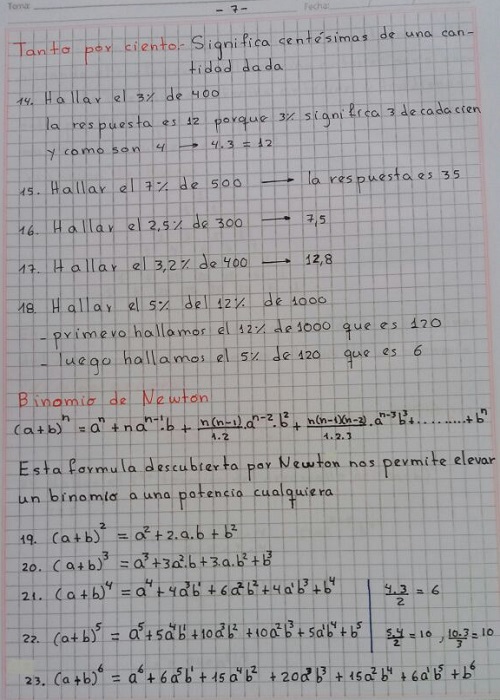 Tema:
- 7 -
Fecha:
Tanto por ciento.- Significa centésimas de una can-
tidad dada
14. Hallar el 3% de 400
la respuesta es 12 porque 3% significa 3 de cada cien
y como son 4 → 4.3 = 12
15. Hallar el 7% de 500 → la respuesta es 35
16. Hallar el 2,5% de 300 → 7,5
17. Hallar el 3,2% de 400 → 12,8
18. Hallar el 5% del 12% de 1000
- primero hallamos el 12% de 1000 que es 120
- luego hallamos el 5% de 120 que es 6
Binomio de Newton
(a+b)ⁿ = aⁿ + n aⁿ⁻¹.b + n(n-1)/1.2 .aⁿ⁻².b² + n(n-1)(n-2)/1.2.3 .aⁿ⁻³b³+..........+bⁿ
Esta formula descubierta por Newton nos permite elevar
un binomio a una potencia cualquiera
19. (a+b)² = a² + 2.a.b + b²
20. (a+b)³ = a³+3a².b+3.a.b²+b³
21. (a+b)⁴ = a⁴+4a³b¹+6a²b²+4a¹b³+b⁴ 4.3/2 = 6
22. (a+b)⁵ = a⁵+5a⁴b¹+10a³b²+10a²b³+5a¹b⁴+b⁵ 5.4/2 = 10 , 10.3/3 = 10
23. (a+b)⁶ = a⁶+6a⁵b¹+15a⁴b²+20a³b³+15a²b⁴+6a¹b⁵+b⁶